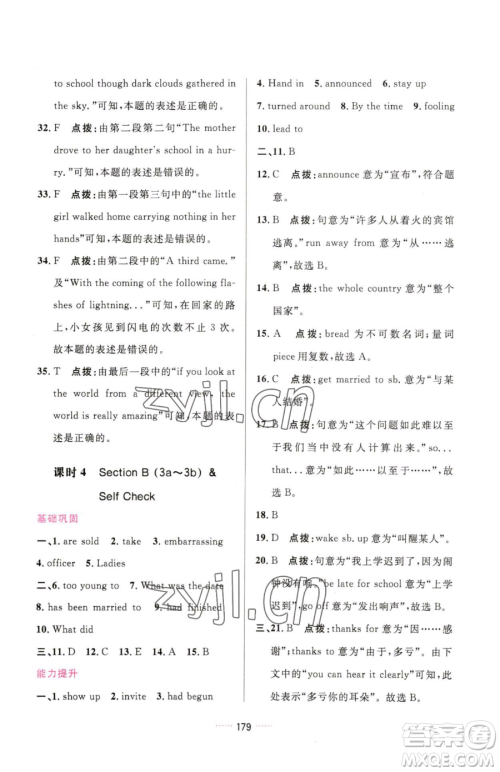 to school though dark clouds gathered
in the sky.”可知，本题的表述是正确的。
32. F 点拨：由第二段第二句“The mother
drove to her daughter's school in a hur-
ry.”可知，本题的表述是错误的。
33. F 点拨：由第一段第三句中的“the little
girl walked home carrying nothing in her
hands”可知，本题的表述是错误的。
34. F 点拨：由第二段中的“A third came.”
及“With the coming of the following fla-
shes of lightning...”可知，在回家的路
上，小女孩见到闪电的次数不止 3 次。
故本题的表述是错误的。
35. T 点拨：由最后一段中的“if you look at
the world from a different view, the
world is really amazing”可知，本题的表
述是正确的。
课时 4 Section B (3a～3b) &
Self Check
基础巩固
一、1. are sold 2. take 3. embarrassing
4. officer 5. Ladies
二、6. too young to 7. What was the date
8. had been married to 9. had finished
10. What did
三、11. D 12. C 13. A 14. A 15. B
能力提升
一、1. show up 2. invite 3. had begun
4. Hand in 5. announced 6. stay up
7. turned around 8. By the time 9. fooling
10. lead to
二、11. B
12. C 点拨：announce 意为“宣布”，符合题
意。
13. B 点拨：句意为“许多人从着火的宾馆
逃离。”run away from 意为“从……
逃离”，故选 B。
14. B 点拨：the whole country 意为“整个
国家”。
15. A 点拨：bread 为不可数名词；量词
piece 用复数，故选 A。
16. C 点拨：get married to sb. 意为“与某
人结婚”。
17. B 点拨：句意为“这个问题如此难以
至于我们中没有人计算出来。”so...
that... 意为“如此……以至于……”，
故选 B。
18. B
19. D 点拨：wake sb. up 意为“叫醒某人”。
20. B 点拨：句意为“我上学迟到了，因为闹
钟没有响。”be late for school 意为“上学
迟到”，go off 意为“发出响声”，故选 B。
三、21. B 点拨：thanks for 意为“因……
感谢”；thanks to 意为“由于，多亏”。由
下文“you can hear it clearly”可知，此
处表示“多亏你的耳朵”。故选 B。
179
zyjl.cn
zyjl.cn